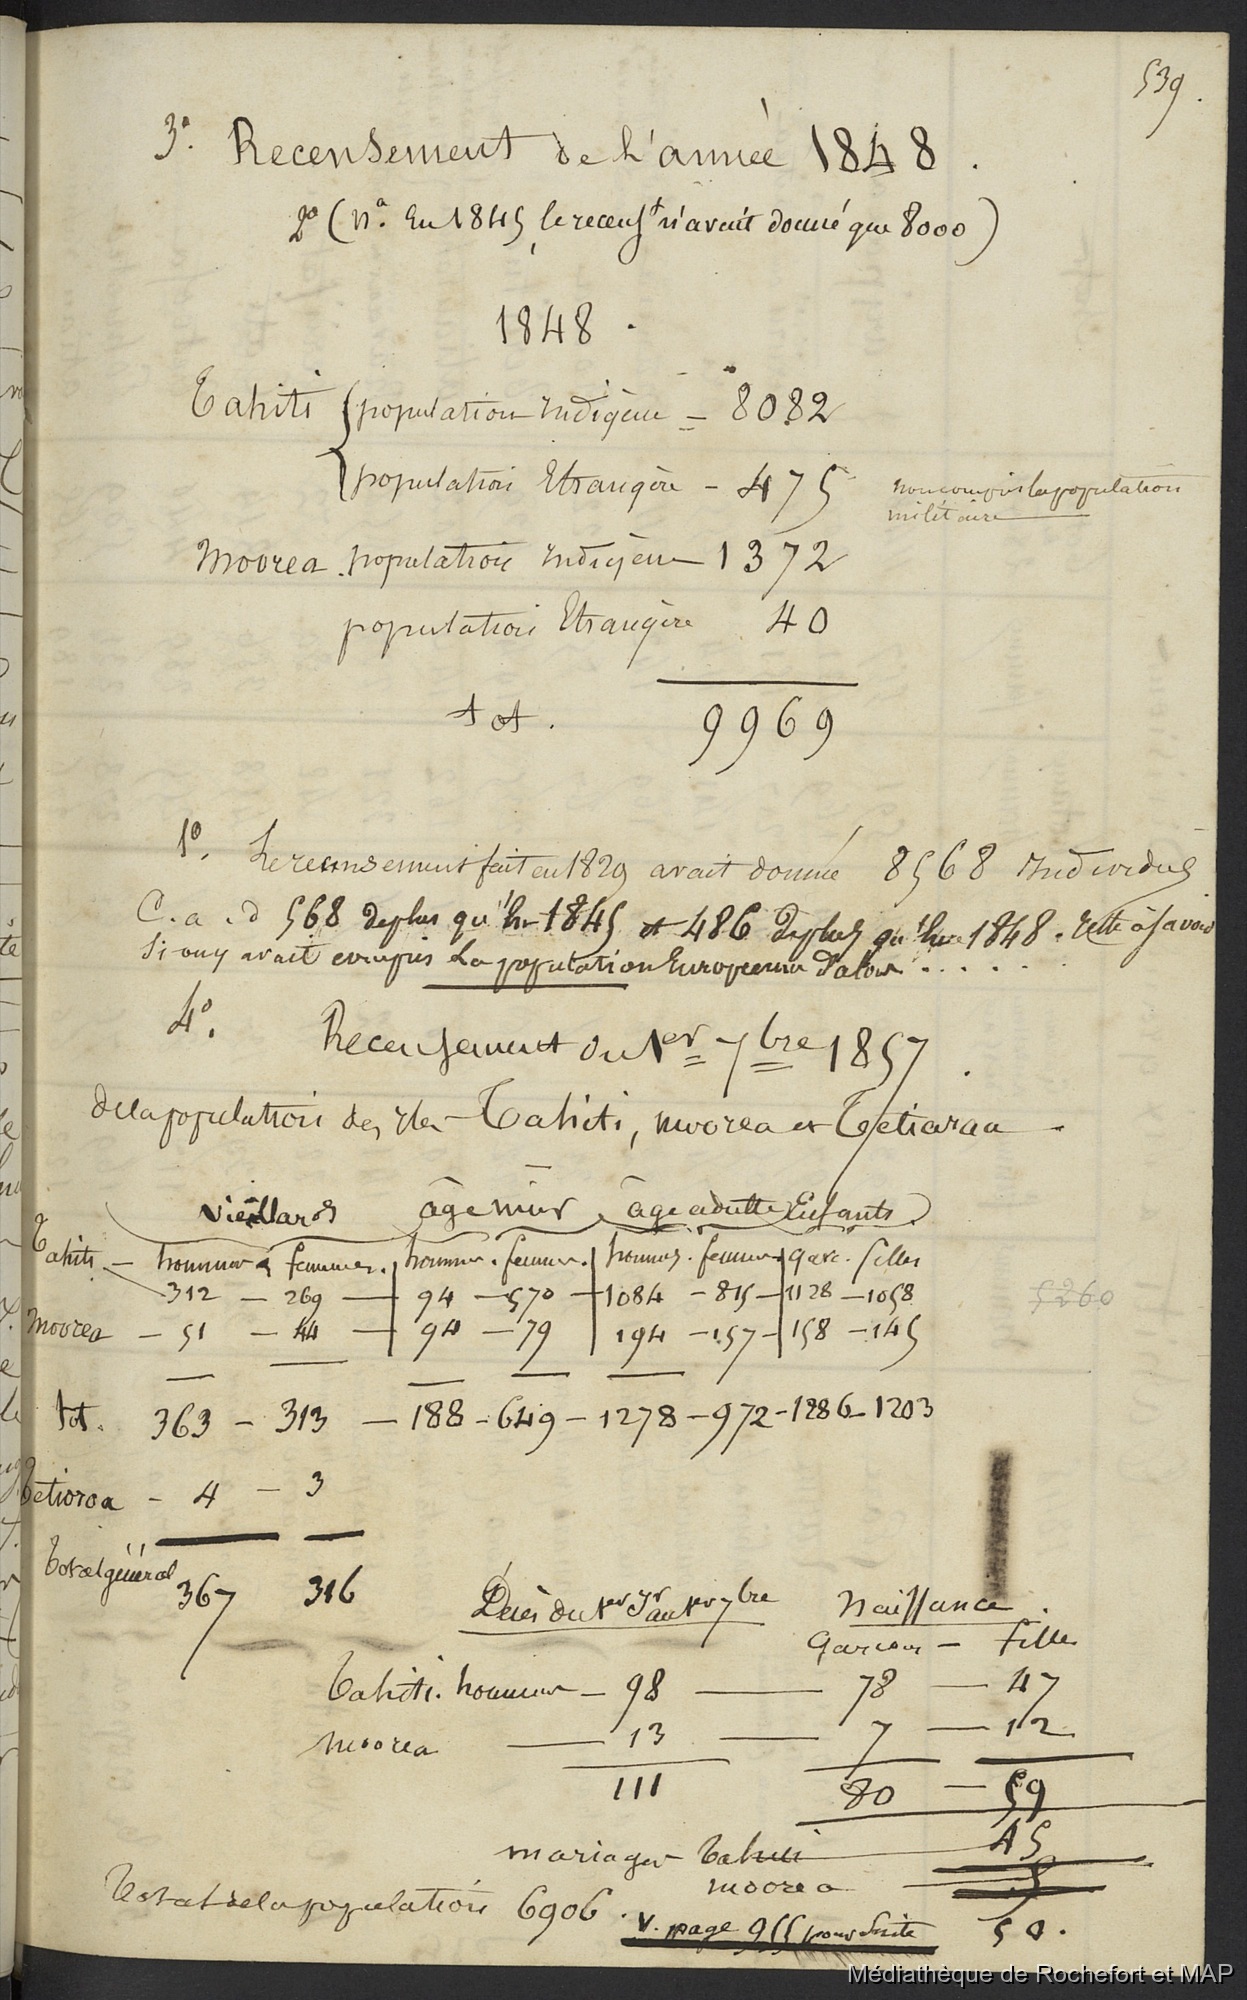 539.
3º. Recensement de l'année 1848.
2º (nª. En 1845, le recenst n'avait donné que 8000)
1848.
Tahiti { population Indigène = 8082
population Etrangère - 475 non compris la population
militaire
Moorea. population Indigène - 1372
population Etrangère 40
tot. 9969
1º. Le recensement fait en 1829 avait donné 8568 Individus
C. a. d 568 de plus qu'en 1845 et 486 de plus qu'en 1848. reste à savoir
si on y avait compris la population Européenne d'alors.....
4º. Recensement du 1er 7bre 1857.
de la population des Iles Tahiti, Moorea et Tetiaroa
vieillards âge mur âge adulte Enfants.
Tahiti - hommes femmes. hommes. femmes. hommes. femmes garc. filles
312 - 269 - 94 - 570 - 1084 - 815 - 1128 - 1058
5260
Moorea - 51 - 44 - 94 - 79 194 - 157 - 158 - 145
tot. 363 - 313 - 188 - 649 - 1278 - 972 - 1286 - 1203
Tetiaroa - 4 - 3
Total général 367 316
Décès du 1er Jr au 1er 7bre Naissance.
Garcons - filles
Tahiti. hommes - 98 - 78 - 47
Moorea - 13 - 7 - 12
111 80 - 59
mariages Tahiti 45
moorea 5
Total de la population 6906. v. page 955 pour Suite 50.
Médiathèque de Rochefort et MAP